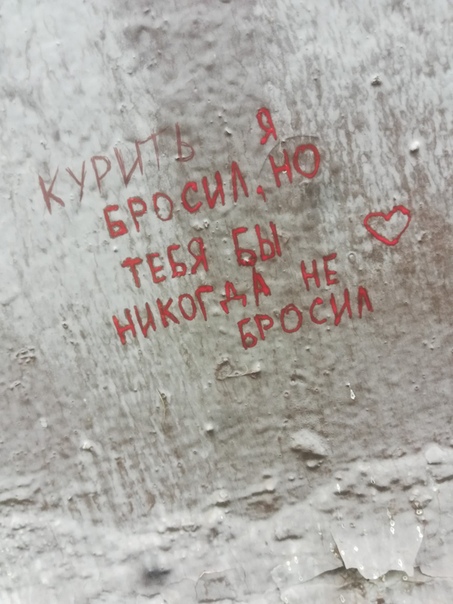 КУРИТЬ Я
БРОСИЛ, НО
ТЕБЯ БЫ
НИКОГДА НЕ
БРОСИЛ